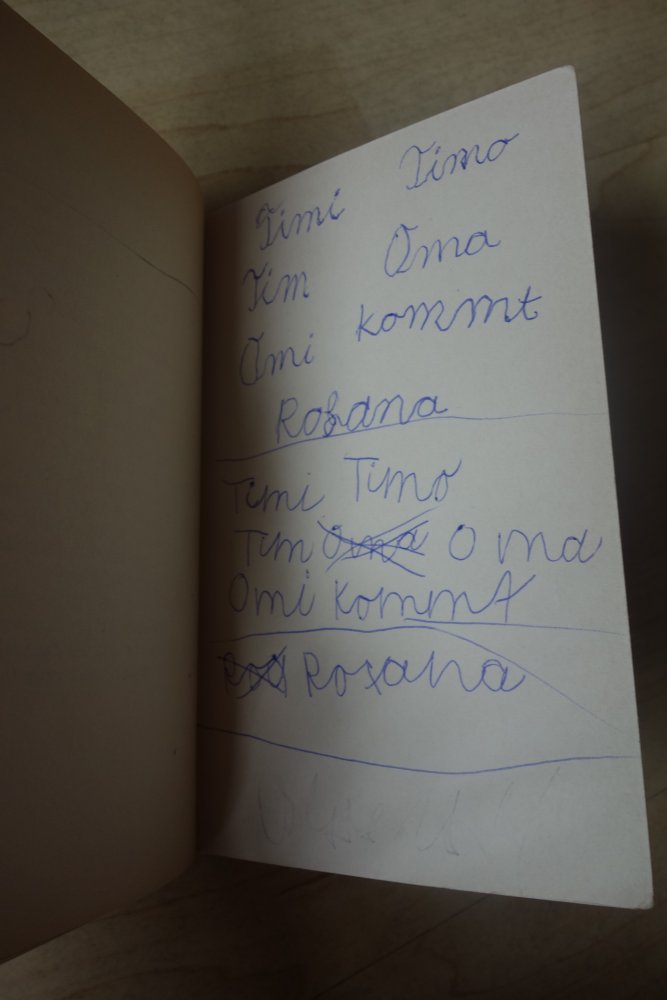 Timi Timo
Tim Oma
Omi kommt
Rosana
Timi Timo
Tim Oma Oma
Omi kommt
Ros Rosana